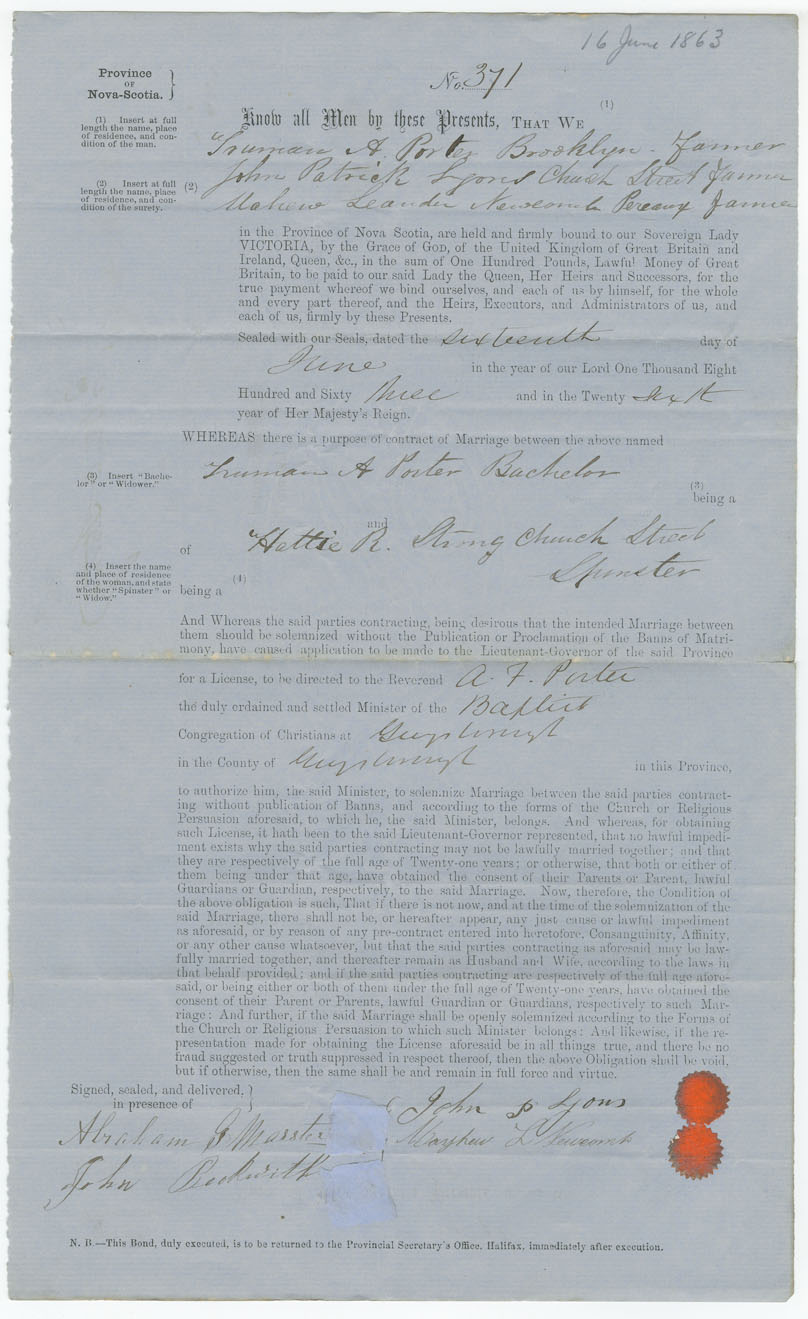 16 June 1863
Province
OF
Nova-Scotia.
No. 371
(1) Insert at full
length the name, place
of residence, and con-
dition of the man.
(1)
Know all Men by these Presents, THAT WE
Truman A Porter Brooklyn - Farmer
(2) Insert at full
length the name, place
of residence, and con-
dition of the surety.
(2)
John Patrick Lyons Church Street Farmer
Mahew Leander Newcomb Pereaux Farmer
in the Province of Nova Scotia, are held and firmly bound to our Sovereign Lady
VICTORIA, by the Grace of GOD, of the United Kingdom of Great Britain and
Ireland, Queen, &c., in the sum of One Hundred Pounds, Lawful Money of Great
Britain, to be paid to our said Lady the Queen, Her Heirs and Successors, for the
true payment whereof we bind ourselves, and each of us by himself, for the whole
and every part thereof, and the Heirs, Executors, and Administrators of us, and
each of us, firmly by these Presents.
Sealed with our Seals, dated the sixteenth day of
June in the year of our Lord One Thousand Eight
Hundred and Sixty three and in the Twenty sixth
year of Her Majesty's Reign.
WHEREAS there is a purpose of contract of Marriage between the above named
(3) Insert "Bache-
lor" or "Widower."
Truman A Porter Bachelor
(3)
being a
and
of Hattie R. Strong Church Street
(4) Insert the name
and place of residence
of the woman, and state
whether "Spinster" or
"Widow."
(4)
being a Spinster
And Whereas the said parties contracting, being desirous that the intended Marriage between
them should be solemnized without the Publication or Proclamation of the Banns of Matri-
mony, have caused application to be made to the Lieutenant-Governor of the said Province
for a License, to be directed to the Reverend A. F. Porter
the duly ordained and settled Minister of the Baptist
Congregation of Christians at Guysborough
in the County of Guysborough in this Province,
to authorize him, the said Minister, to solemnize Marriage between the said parties contract-
ing without publication of Banns, and according to the forms of the Church or Religious
Persuasion aforesaid, to which he, the said Minister, belongs. And whereas, for obtaining
such License, it hath been to the said Lieutenant-Governor represented, that no lawful impedi-
ment exists why the said parties contracting may not be lawfully married together; and that
they are respectively of the full age of Twenty-one years; or otherwise, that both or either of
them being under that age, have obtained the consent of their Parents or Parent, lawful
Guardians or Guardian, respectively, to the said Marriage. Now, therefore, the Condition of
the above obligation is such, That if there is not now, and at the time of the solemnization of the
said Marriage, there shall not be, or hereafter appear, any just cause or lawful impediment
as aforesaid, or by reason of any pre-contract entered into heretofore, Consanguinity, Affinity,
or any other cause whatsoever, but that the said parties contracting as aforesaid may be law-
fully married together, and thereafter remain as Husband and Wife, according to the laws in
that behalf provided; and if the said parties contracting are respectively of the full age afore-
said, or being either or both of them under the full age of Twenty-one years, have obtained the
consent of their Parent or Parents, lawful Guardian or Guardians, respectively to such Mar-
riage: And further, if the said Marriage shall be openly solemnized according to the Forms of
the Church or Religious Persuasion to which such Minister belongs: And likewise, if the re-
presentation made for obtaining the License aforesaid be in all things true, and there be no
fraud suggested or truth suppressed in respect thereof, then the above Obligation shall be void,
but if otherwise, then the same shall be and remain in full force and virtue.
Signed, sealed, and delivered,
in presence of
John P Lyons
Abraham Masster
Mayhew L Newcomb
John Beckwith
N. B.—This Bond, duly executed, is to be returned to the Provincial Secretary's Office, Halifax, immediately after execution.